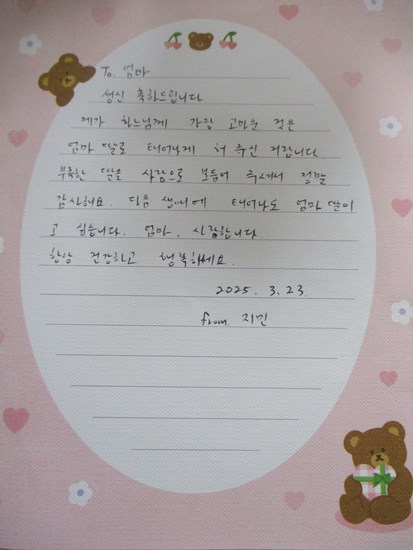 To. 엄마
생신 축하드립니다
제가 하느님께 가장 고마운 것은
엄마 딸로 태어나게 해 주신 거랍니다.
부족한 딸을 사랑으로 보듬어 주셔서 정말
감사해요. 다음 생에에 태어나도 엄마 딸이
고 싶습니다. 엄마, 사랑합니다
항상 건강하고 행복하세요.
2025. 3. 23
from. 지민